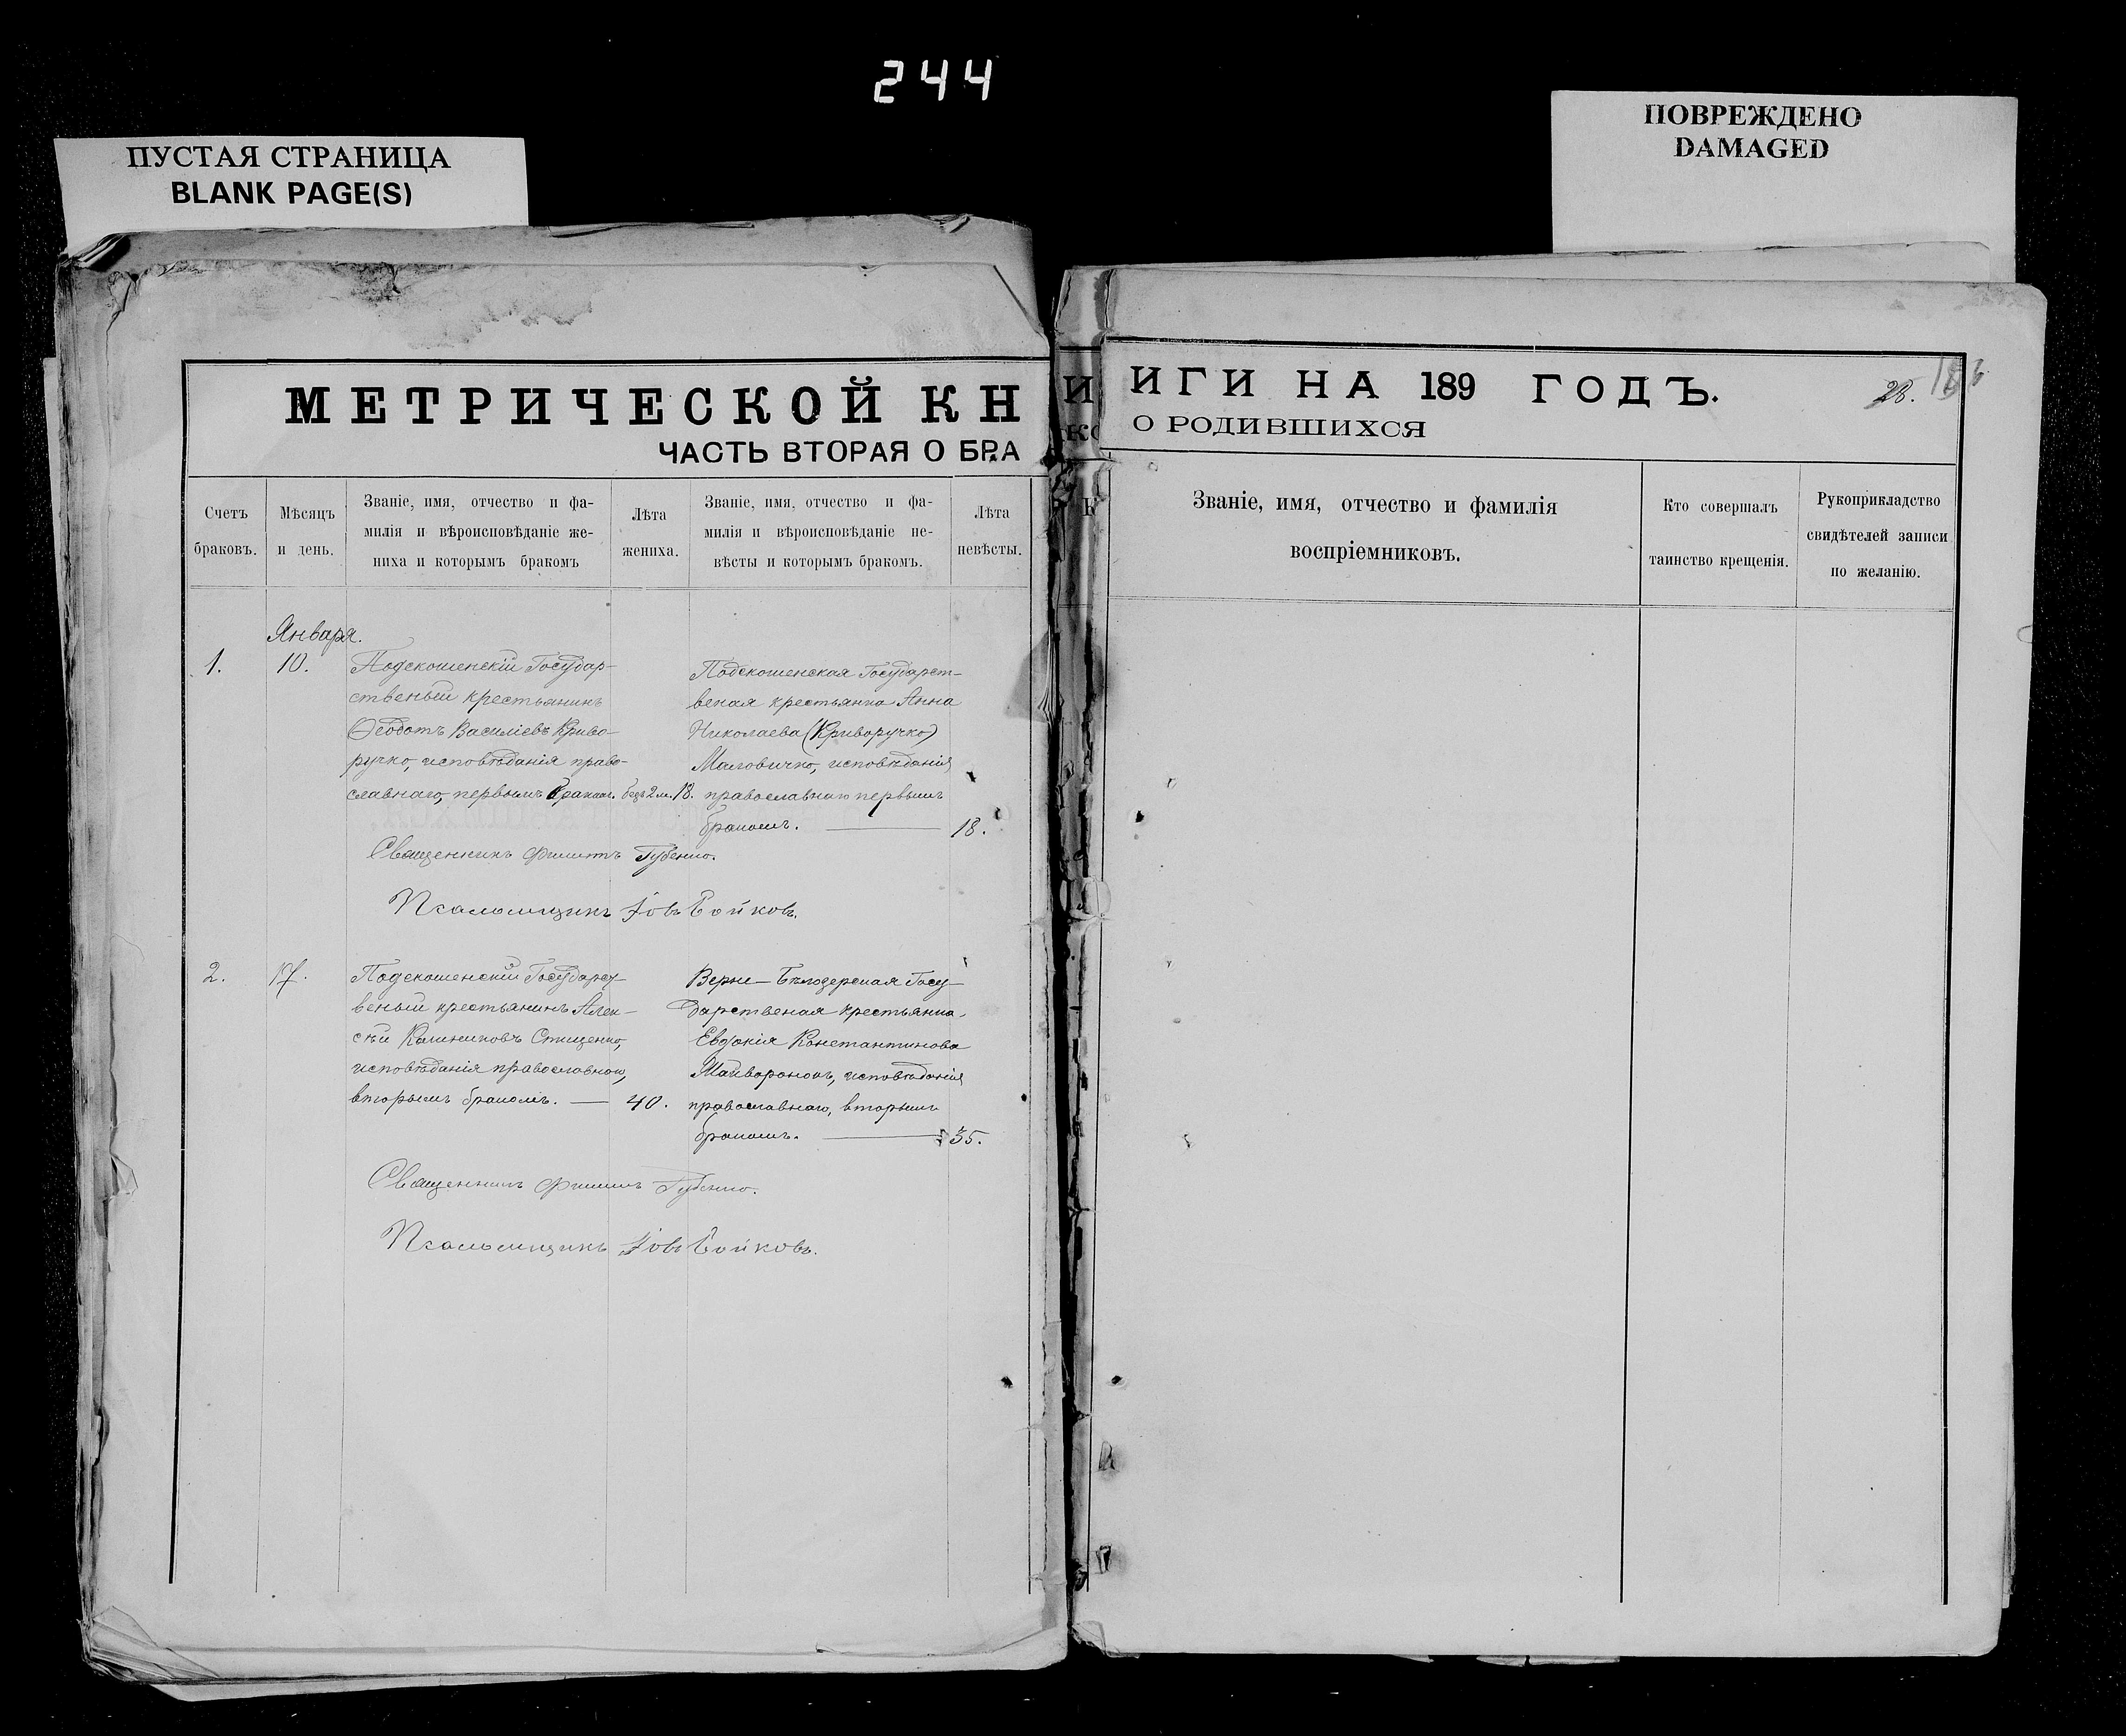 244
ПУСТАЯ СТРАНИЦА
BLANK PAGE(S)
ПОВРЕЖДЕНО
DAMAGED
МЕТРИЧЕСКОЙ КН
ЧАСТЬ ВТОРАЯ О БРА
Счетъ браковъ.
Мѣсяцъ и день.
Званіе, имя, отчество и фа-
милія и вѣроисповѣданіе же-
ниха и которымъ бракомъ
Лѣта жениха.
Званіе, имя, отчество и фа-
милія и вѣроисповѣданіе не-
вѣсты и которымъ бракомъ.
Лѣта невѣсты.
Января.
1.
10.
Подскошенскій Государ-
ственый крестьянинъ
Ѳеодотъ Василіевъ Криво-
ручко, исповѣданія право-
славнаго, первымъ бракомъ. безъ 2 м. 18.
Подскошенская Государст-
веная крестьянка Анна
Николаева (Криворучко)
исповѣданія
православнаго первымъ
бракомъ. 18.
Священникъ Филиппъ Губенко.
Псаломщикъ Іовъ Бойковъ.
2.
17.
Подскошенскій Государст-
веный крестьянинъ Алек-
сѣй Калиниковъ
исповѣданія православнаго,
вторымъ бракомъ. — 40.
Верне-Бѣлозерская Госу-
дарственая крестьянка
Евдокія Константинова
исповѣданія
православнаго, вторымъ
бракомъ. 35.
Священникъ Филиппъ Губенко.
Псаломщикъ Іовъ Бойковъ.
ИГИ НА 189 ГОДЪ.
28.
О РОДИВШИХСЯ
Званіе, имя, отчество и фамилія
воспріемниковъ.
Кто совершалъ
таинство крещенія.
Рукоприкладство
свидѣтелей записи
по желанію.